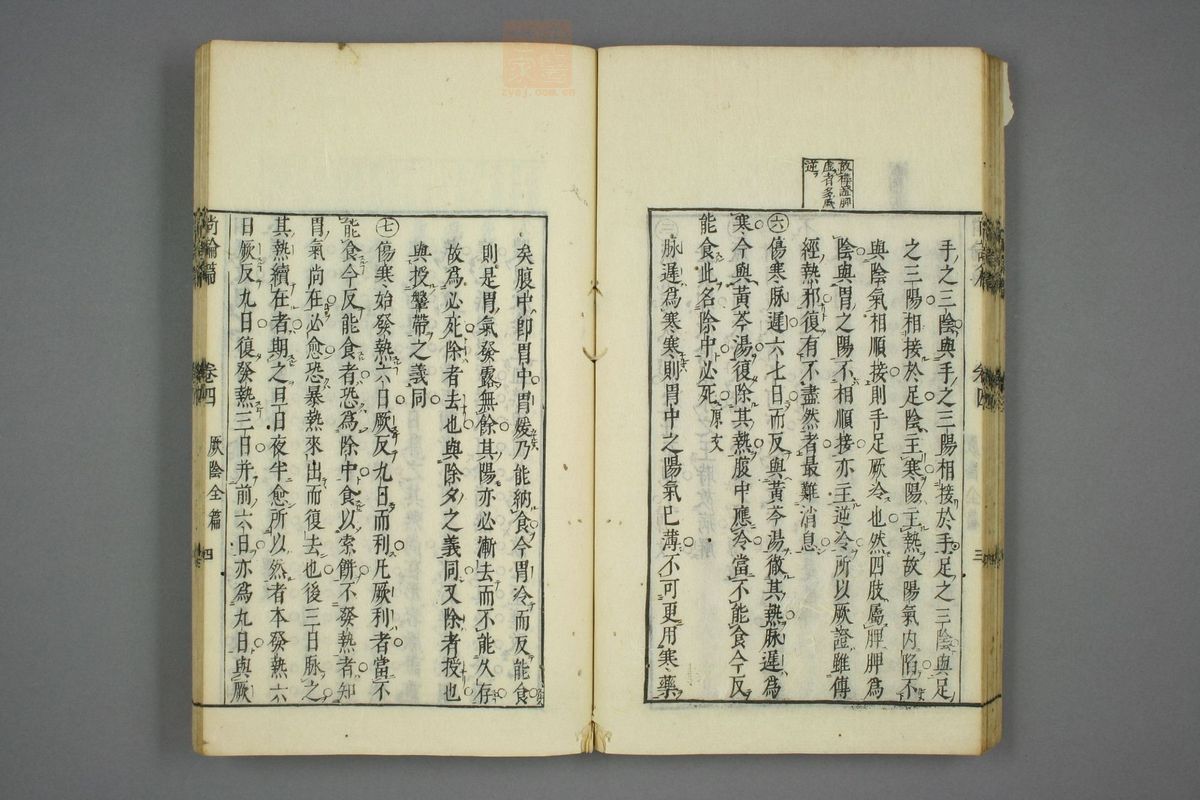 故稗證脾
虛者多厥
逆
手之三陰與手之三陽相接於手足之三陰與足
之三陽相接於足陰主寒陽主熱故陽氣內陷不
與陰氣相順接則手足厥冷也然四肢屬脾脾為
陰與胃之陽不相順接亦主逆冷所以厥證雖傳
經熱邪復有不盡然者最難消息
㊅傷寒脉遲六七日而反與黃芩湯徹其熱脉遲爲
寒今與黃芩湯復除其熱腹中應冷當不能食今反
能食此名除中必死原文
脉遲爲寒寒則胃中之陽氣已薄不可更用寒藥
三
矣腹中即胃中胃煖乃能納食今胃冷而反能食
則是胃氣發露無餘其陽亦必漸去而不能久存
故爲必死除者去也與除夕之義同又除者授也
與授鞶帶之義同
㊆傷寒始發熱六日厥反九日而利凡厥利者當不
能食今反能食者恐爲除中食以索餅不發熱者知
胃氣尚在必愈恐暴熱來出而復去也後三日脉之
其熱續在者期之旦日夜半愈所以然者本發熱六
日厥反九日復發熱三日并前六日亦爲九日與厥
尚論篇 卷四 厥陰全篇 四
zysj.com.cn